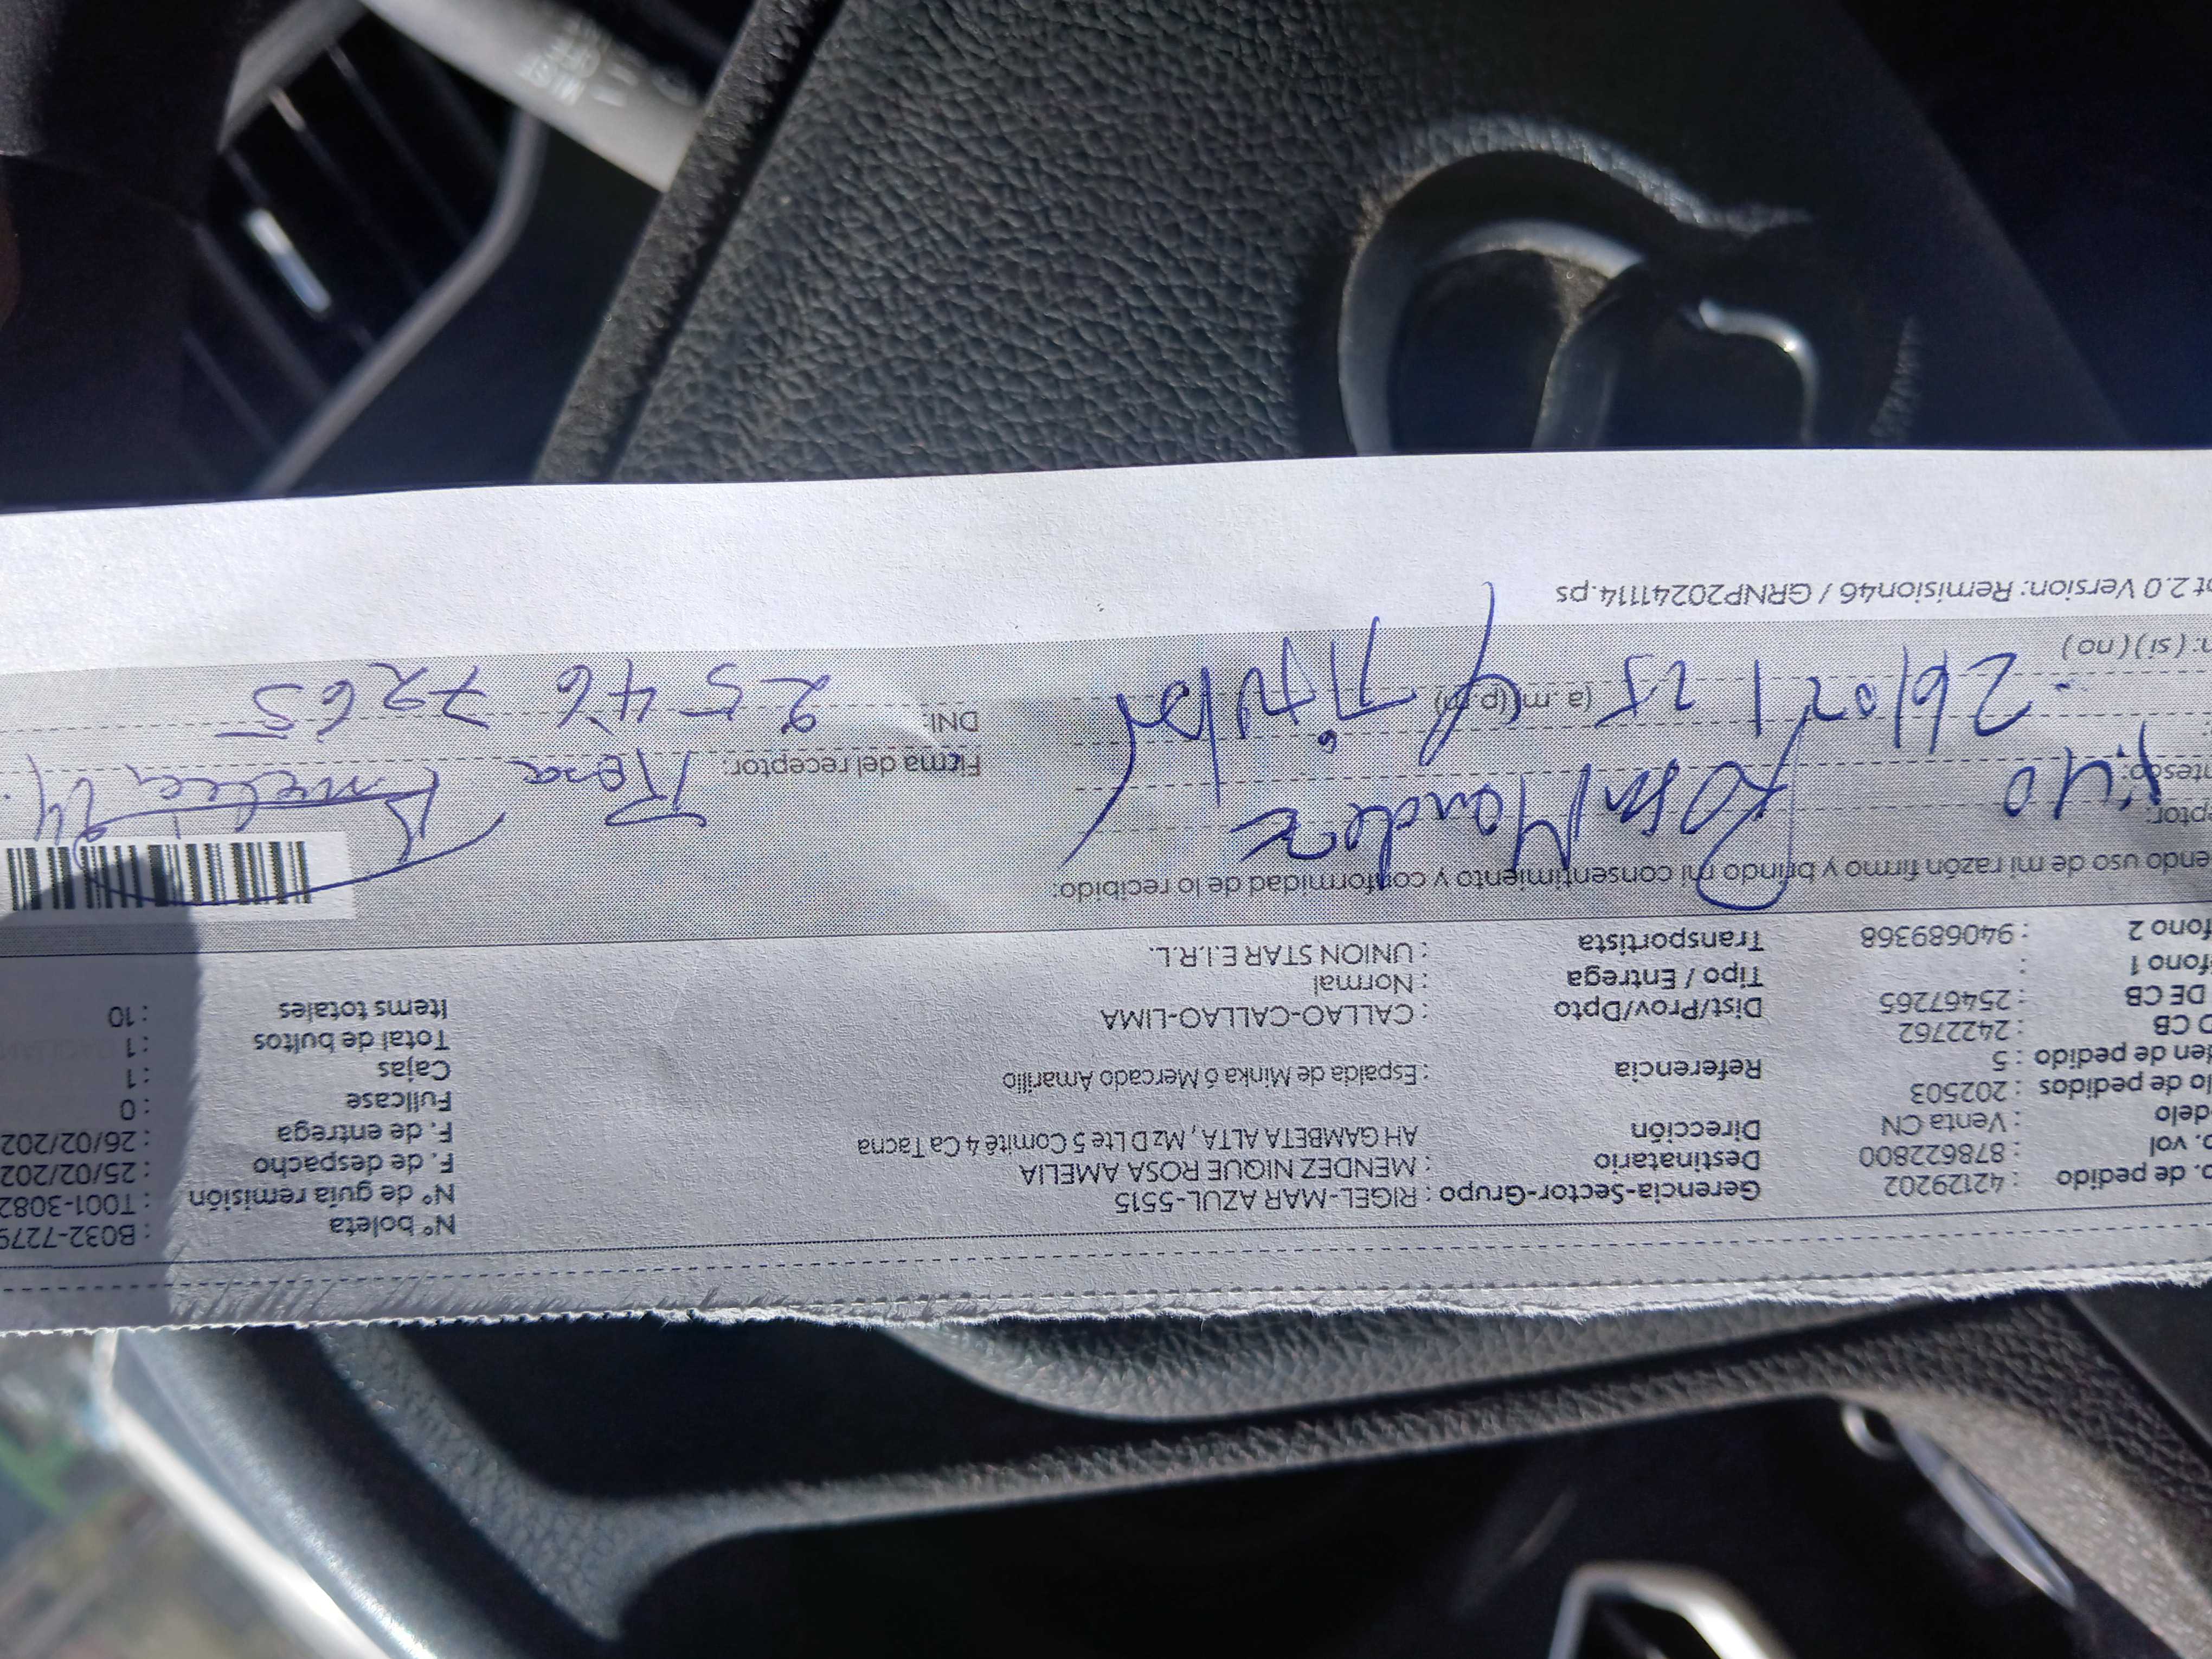 Nº boleta : B032-7279
o. de pedido : 42129202 Gerencia-Sector-Grupo : RIGEL-MAR AZUL-5515 Nº de guía remisión : T001-3082
o. vol : 878622800 Destinatario : MENDEZ NIQUE ROSA AMELIA F. de despacho : 25/02/202
delo : Venta CN Dirección AH GAMBETA ALTA , Mz D Lte 5 Comité 4 Ca Tacna F. de entrega : 26/02/202
lo de pedidos : 202503 Fullcase : 0
en de pedido : 5 Referencia : Espalda de Minka ó Mercado Amarillo Cajas : 1
O CB : 2422762 Total de bultos : 1
DE CB : 25467265 Dist/Prov/Dpto : CALLAO-CALLAO-LIMA Items totales : 10
éfono 1 : Tipo / Entrega : Normal
fono 2 : 940689368 Transportista : UNION STAR E.I.R.L.
endo uso de mi razón firmo y brindo mi consentimiento y conformidad de lo recibido:
eptor: Rosa Mendez
ntesco: 1:40 Firma del receptor: Rosa Amelia M.
26/02/25 (a.m) (p.m) Titular DNI: 25467265
n: (si) (no)
ot 2.0 Version: Remision46 / GRNP20241114.ps
MIST
OFF